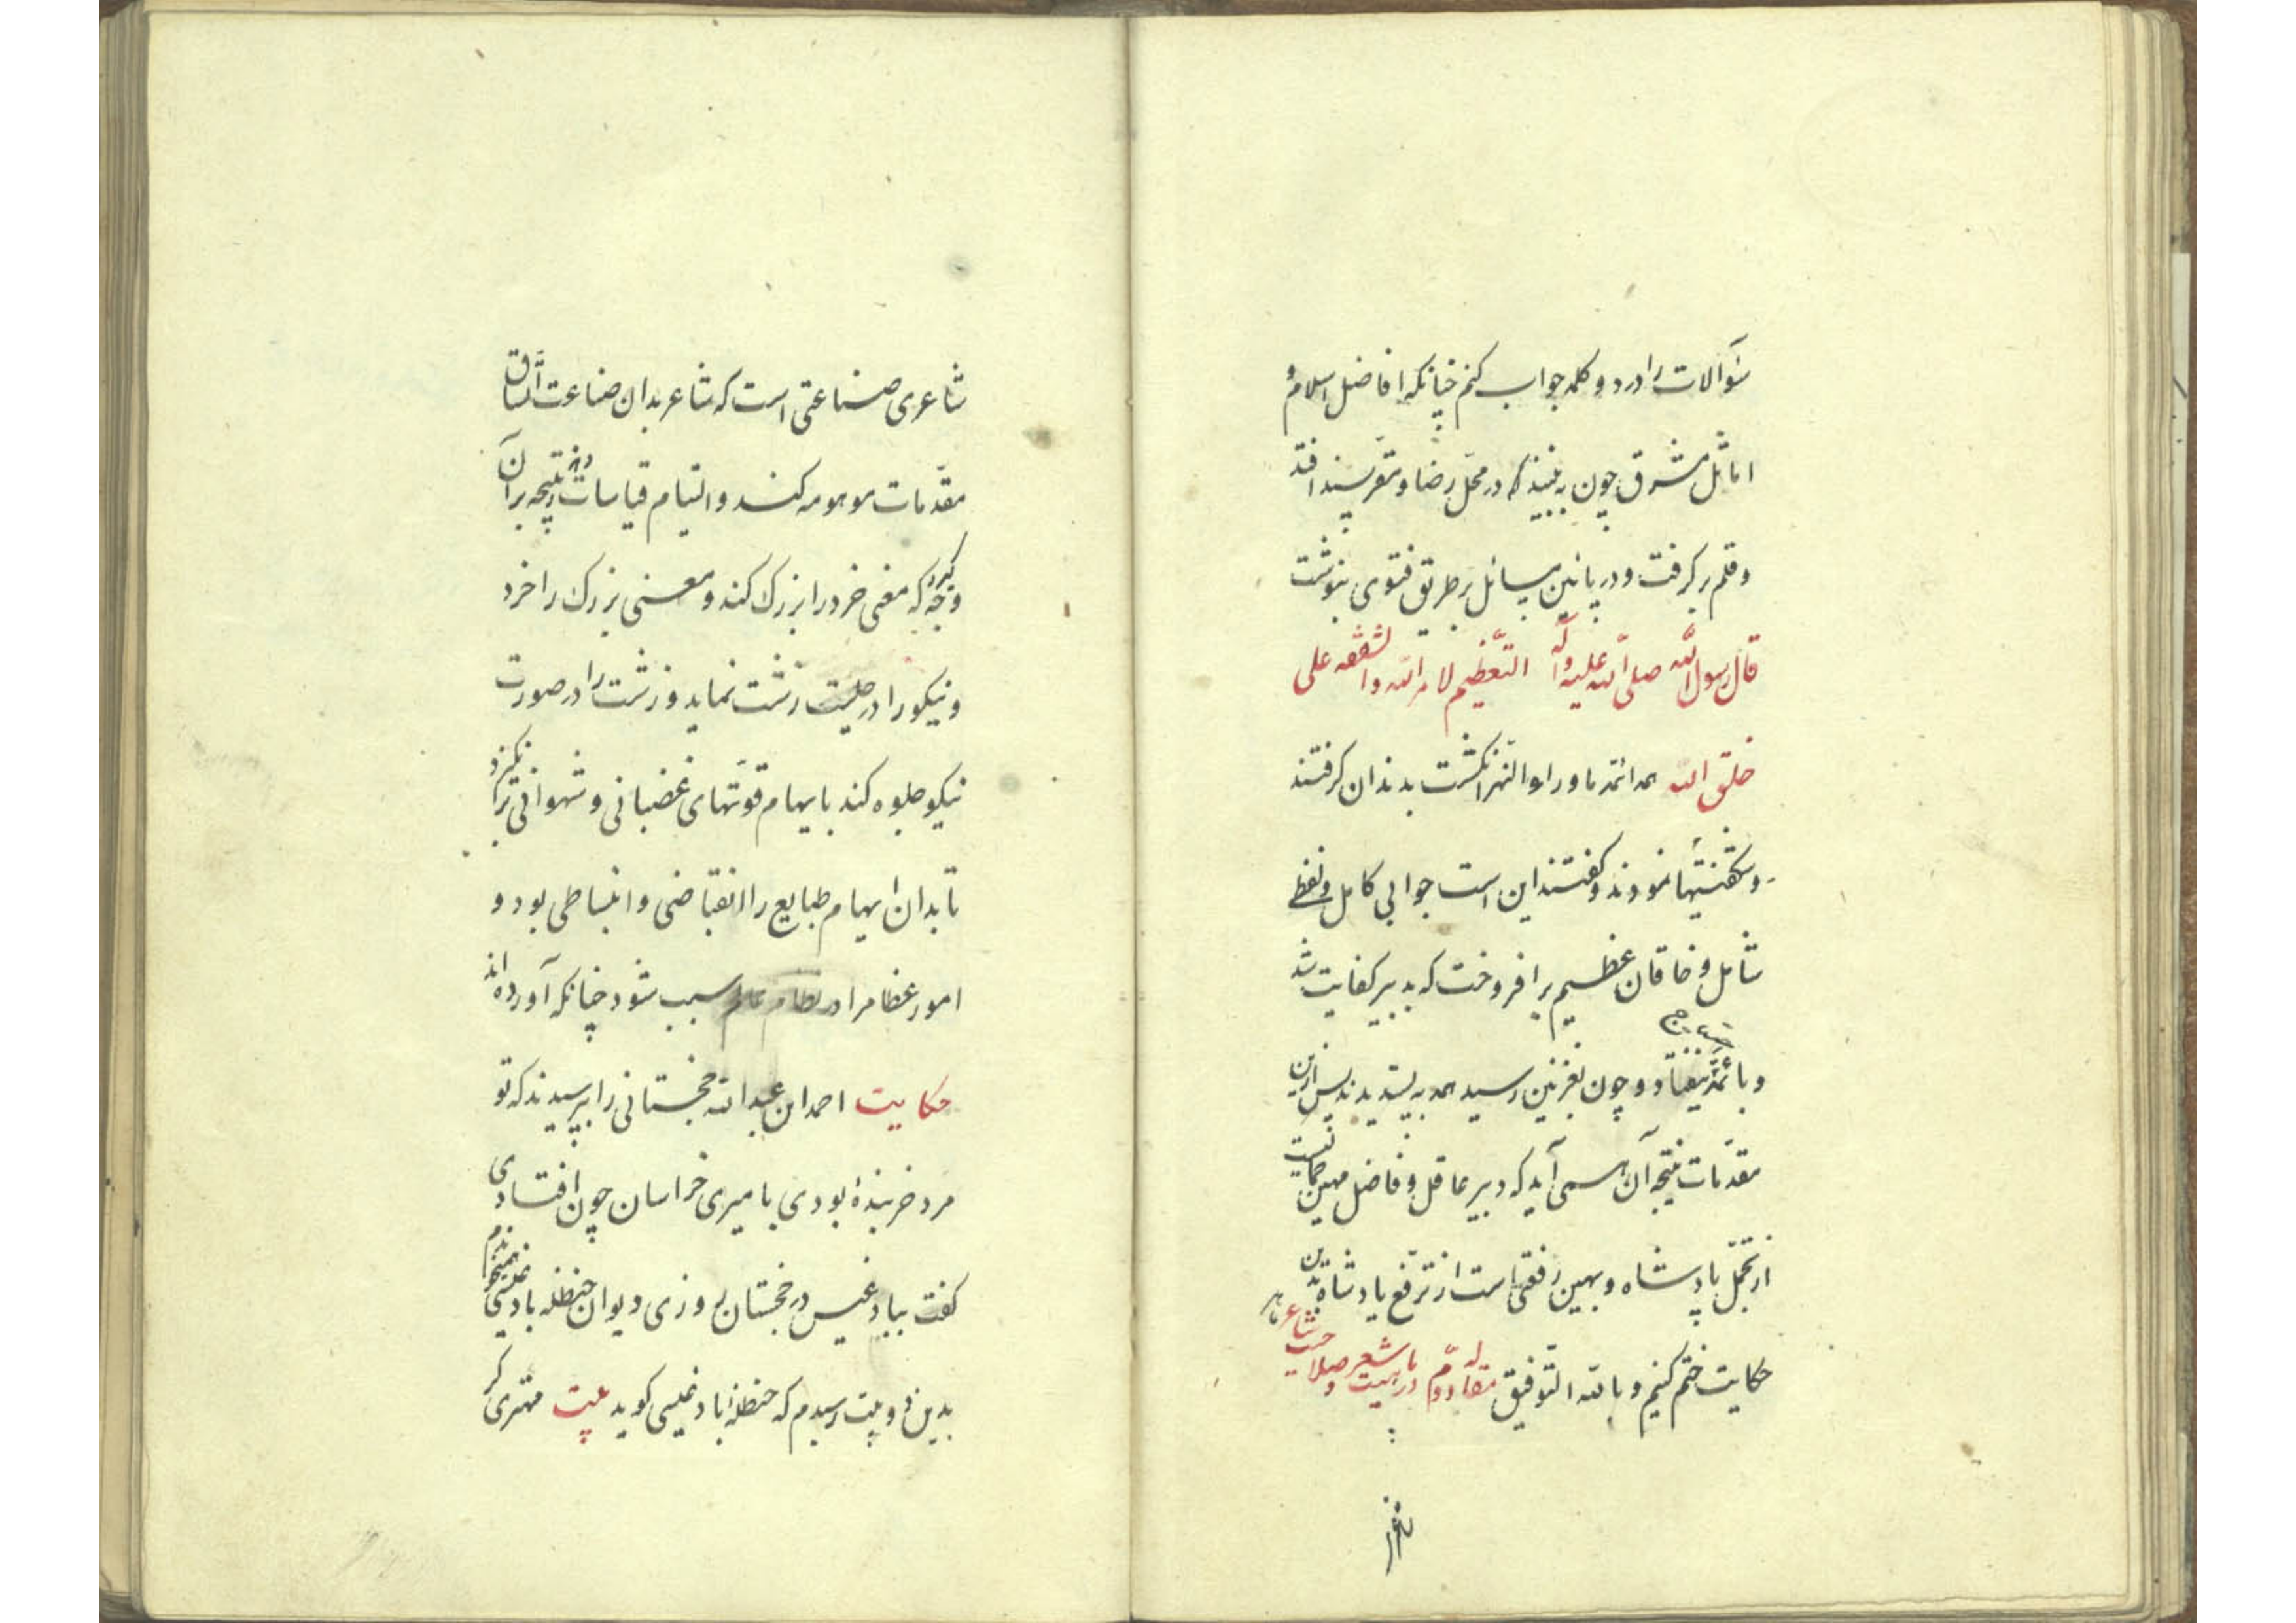 سؤآلات را در دو کلمه جواب کنم چنانکه افاضل اسلام و
اماثل مشرق چون به بینند که در محل رضا و مقر پسند افتد
و قلم بر گرفت و در پائین مسائل بر طریق فتوی بنوشت
قال رسول الله صلی الله علیه وآله التعظیم لامر الله والشفقه علی
خلق الله همه ائمه ماوراء النهر انگشت بدندان گرفتند
و شگفتیها نمودند و گفتند این است جوابی کامل و لفظی
شامل و خاقان عظیم بر افروخت که بدبیر کفایت شد
و بائمه نیفتاد و چون بغزنین رسید همه به پسندیدند پس ازین
مقدمات نتیجه آن همی آید که دبیر عاقل و فاضل مهین جمالیست
از تجمل پادشاه و بهین رفعتی است از ترفع پادشاه بدین
حکایت ختم کنیم و بالله التوفیق مقاله دوم در ماهیت شعر و صلاحیت شاعر
شاعری صناعتی است که شاعر بدان صناعت اتساق
مقدمات موهومه کند و التیام قیاسات منتجه بر آن
وجه که معنی خرد را بزرگ کند و معنی بزرگ را خرد
و نیکو را در خلعت زشت نماید و زشت را در صورت
نیکو جلوه کند بایهام قوتهای غضبانی و شهوانی را برانگیزد
تا بدان ایهام طبایع را انقباضی و انبساطی بود و
امور عظام را در نظام عالم سبب شود چنانکه آورده اند
حکایت احمد ابن عبدالله خجستانی را بپرسیدند که تو
مرد خربنده بودی بامیری خراسان چون افتادی
گفت ببادغیس در خجستان روزی دیوان حنظله بادغیسی همیخواندم
بدین دو بیت رسیدم که حنظله بادغیسی گوید بیت مهتری گر